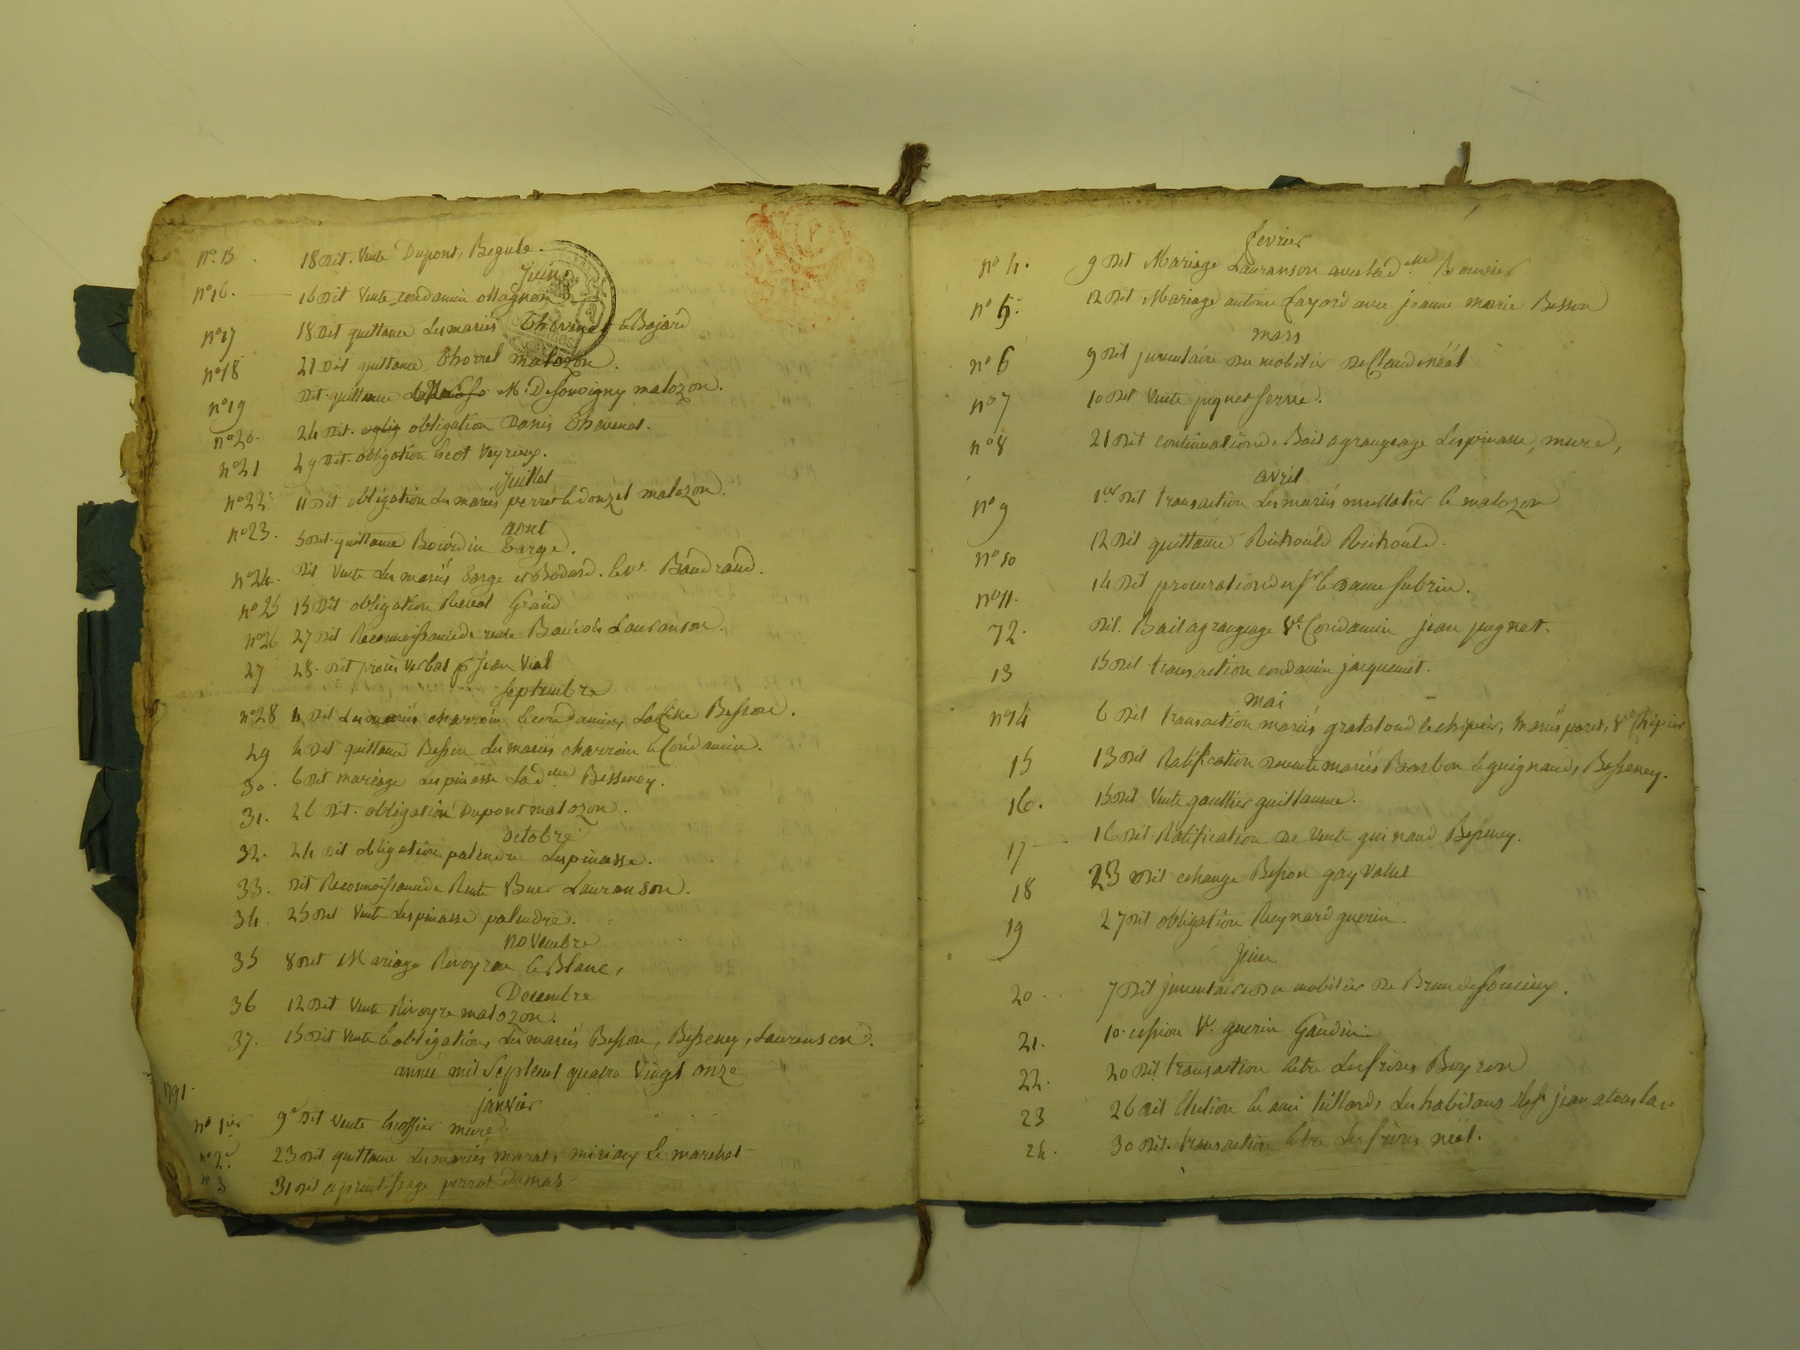 n°. 15. 18 Dit. Vente Dupont, Begule.
Juin
n°16. 16 Dit Vente condamin Magnon
n°17 18 Dit quittance Les mariés Thevenet le Bajard
n°18 21 Dit quittance Thorrel malozon.
n°19 Dit quittance M. De Souvigny malozon.
n°20. 24 Dit. obligation Danis Thevenet.
n°21 29 Dit. obligation Veyrieux.
Juillet
n°22 11 Dit obligation Les mariés perret le donzel malozon.
aout
n°23. 5 Dit. quittance Bourdin Barge.
n°24. Dit Vente Les mariés Barge et Bodard. Baudrand.
n°25 15 Dit obligation Revol Grand
n°26 27 Dit Reconnoissance de rente Lauranson.
27 28. Dit procès Verbal pr Jean Vial
Septembre
n°28 4 Dit Les mariés charroin le condamin, Bessone.
29 4 Dit quittance Besson Les mariés charroin le Condamin.
30. 6 Dit mariage Lespinasse la dlle Besseney.
31. 26 Dit. obligation Dupont malozon.
Octobre
32. 24 Dit obligation palendre Lespinasse.
33. Dit Reconnoissance de Rente Lauranson.
34. 25 Dit Vente Lespinasse palendre.
Novembre
35 8 Dit Mariage Rivoyre le Blanc,
Decembre
36 12 Dit Vente Rivoyre malozon.
37. 15 Dit Vente & obligation, Les mariés Besson, Besseney, Lauranson.
année mil Sept cent quatre Vingt onze
1791.
janvier
n° 1er 9e Dit Vente mure.
n° 2. 23 Dit quittance Les mariés marat, le marchat
n° 3 31 Dit aprentissage perrat dumas
fevrier
n° 4. 9 Dit Mariage Lauranson avec la dlle Bouvier
n° 5. 12 Dit Mariage antoine Layard avec jeanne marie Besson
mars
n° 6 9 Dit inventaire du mobilier De Claude néel
n° 7 10 Dit Vente pignet ferrié.
n° 8 21 Dit continuation de Bail a grangeage Lespinasse, mure,
avril
n° 9 1er Dit transaction Les mariés mellatier le malozon
n° 10 12 Dit quittance Richould Richould.
n° 11. 14 Dit procuration du Sr le Dame fabrin.
12. Dit. Bail a grangeage Ve Condamin jean pugnet.
13 15 Dit transaction condamin jacquemet.
mai
n° 14 6 Dit transaction mariés grataloud le chipier, mariés poret, Ve Chipier
15 13 Dit Ratification de vente mariés Barbon le guignaud, Besseney.
16. 15 Dit Vente gaultier guillaume.
17 16 Dit Ratification De Vente guinaud Besseney.
18 23 Dit echange Besson gay Vallet
19 27 Dit obligation Reynard guerin
Juin
20. 7 Dit inventaire du mobilier De Brun de Soucieux.
21. 10. cession Ve. guerin Gaudin
22. 20 Dit transaction Entre Les frères Boyron
23 26 Dit Election Les habitans
24. 30 Dit. transaction Entre Les frères néel.